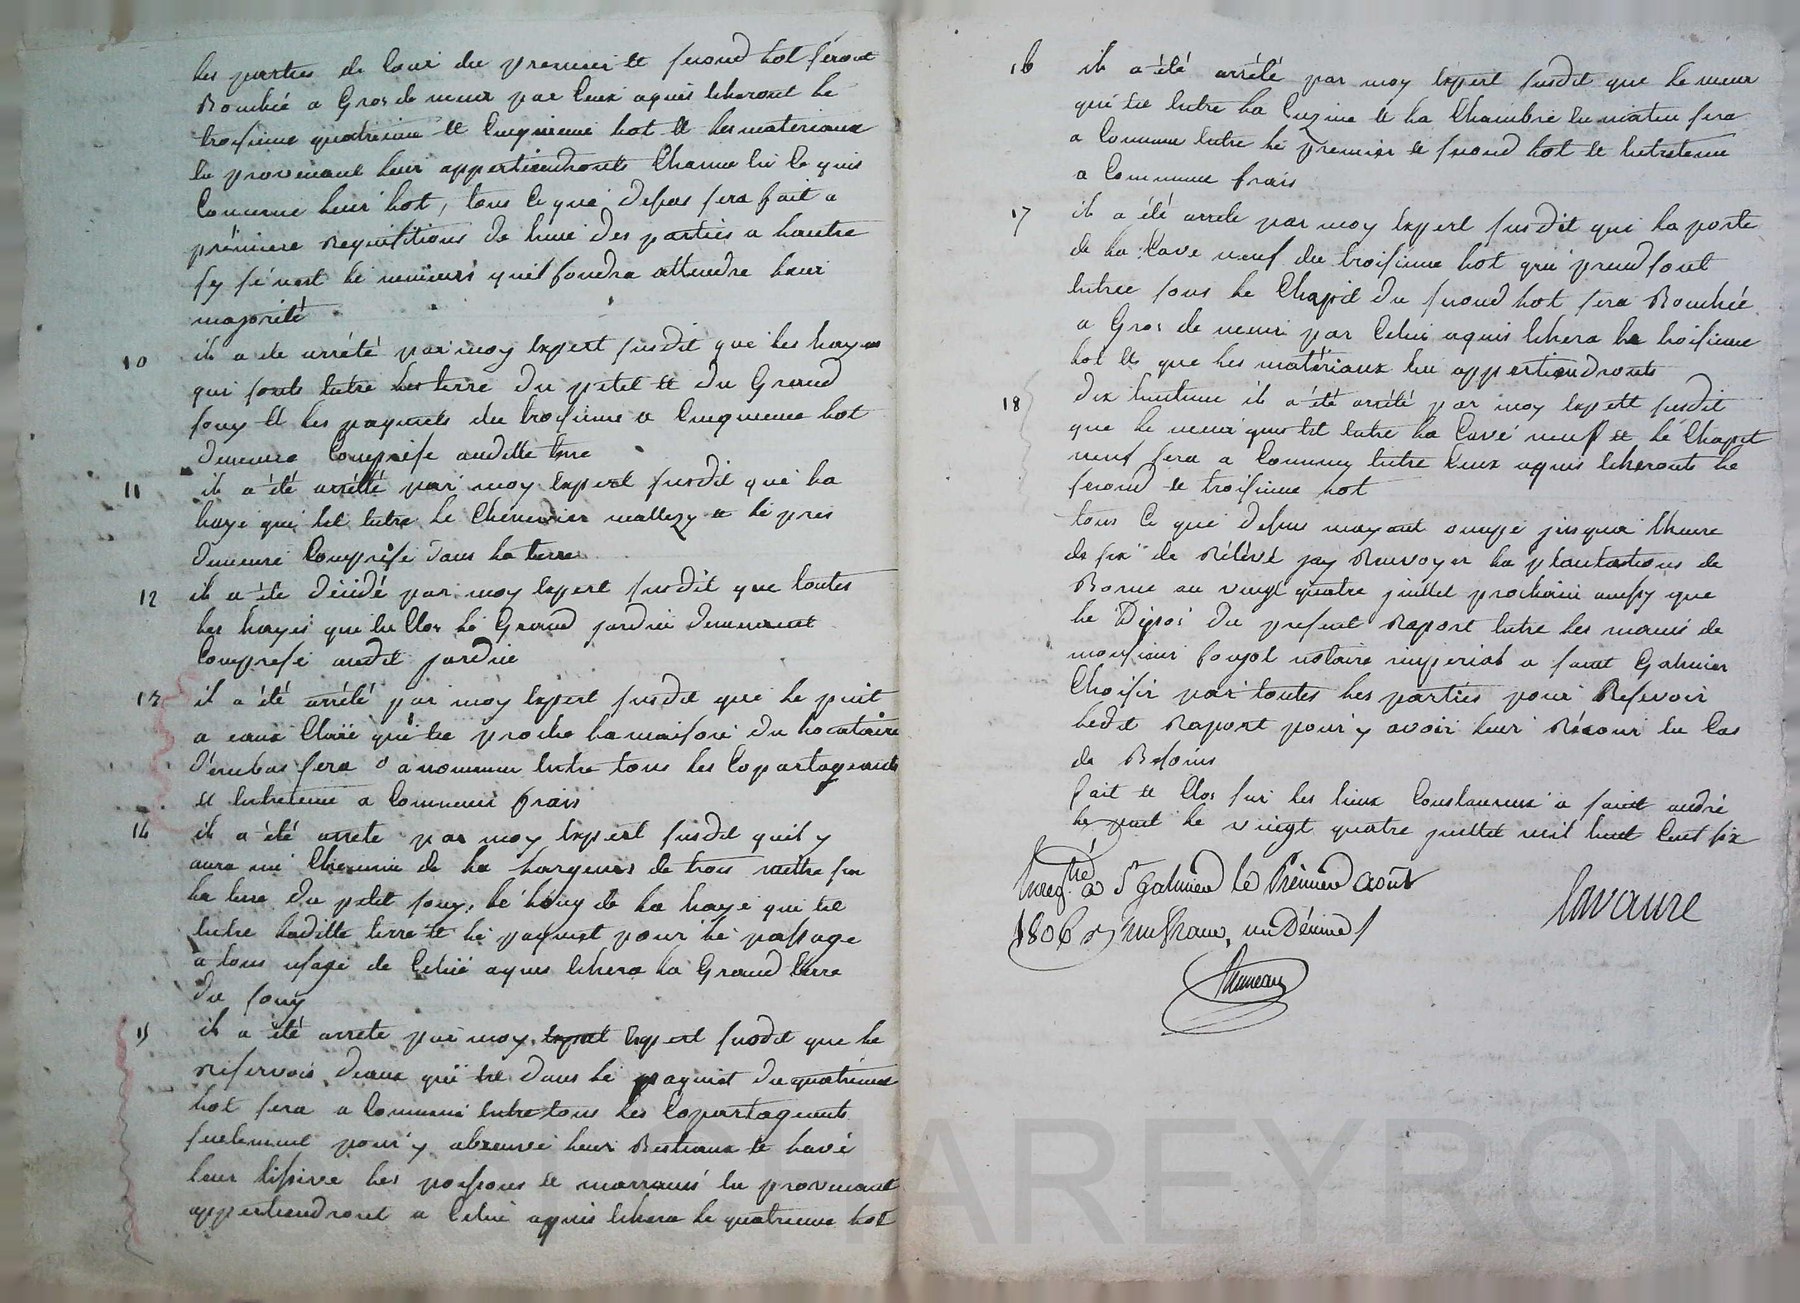 les parties de lour du premier et segond lot seront
Bouchée a Gros de meur par ceux aquis lcheront le
troisieme quatrieme et cinquieme lot et les materiaux
en provenant leur appertiendronts chacun en ce quis
concerne leur lot, tous ce que desus sera fait a
premiere requisitions de lune des parties a lautre
sy se nest le mineurs quil foudra attendre leur
majorité
10 il a ete arrété par moy expert susdit que les hayes
qui sonts entre les terre du petit et du Grand
souy et les paquiets du troisieme a cinquieme lot
demeure comprise audette terre
11 il a été arrété par moy expert susdit que la
haye que est entre le chenevier mallezy et le pres
demeure comprise dans la terre
12 il a été décidé par moy expert susdit que toutes
les hayes que en clos le Grand jardin demeurent
comprese audit jardin
13 il a été arrété par moy expert susdit que le puit
a eaux claire que est proche la maison du locataire
d'enbas sera a nommun entre tous les copartageants
et entretenu a commune frais
14 il a été arrete par moy expert susdit quil y
aura un chemin de la largeur de trois mettre sur
la terre du petit souy, le long de la haye qui est
entre laditte terre et le paquiet pour le passage
a tous usage de celui aquis echera la Grand terre
du souy
15 il a été arrete par moy expert expert susdit que le
reservois deaux qui est dans le paquiet du quatrieme
lot sera a commune entre tous les copartageants
seulement pour y abreuve leur Bestiaux et lavé
leur lisive les poissons et marrains en provenant
appertiendront a celui aquis echera le quatrieme lot
16 il a été arrété par moy expert susdit que le meur
qui est entre la cuzine et la chambre du matin sera
a commun entre le premier et segond lot et entretenu
a commune frais
17 il a été arrete par moy expert susdit que la porte
de la cave neuf du troisieme lot que prend sont
entree sous le chapit du segond lot sera Bouchée
a Gros de meur par celui aquis echera le troisieme
lot et que les matériaux lui appertiendronts
18 dix huitieme il a été arrété par moy expert susdit
que le meur que est entre la cave neuf et le chapit
neuf sera a commun entre ceux aquis echeronts le
segond et troisieme lot
tous ce que desus mayant ocupé jusqua lheure
de six de rélévé jay renvoyer la plantations de
Borne au vingt quatre juillet prochain ausy que
le Dépos du present Raport entre les mains de
monsieur Poujol notaire imperial a saint Galmier
choisir par toutes les parties pour Resevoir
ledit Raport pour y avoir leur Récour en cas
de Besoins
fait et clos sur les lieux contancieux a saint andré
le puit le vingt quatre juillet mil huit cent six
Enreg.tré a St galmier le Premier août
1806 un franc, un Décime
Lavaure
CHAREYRON